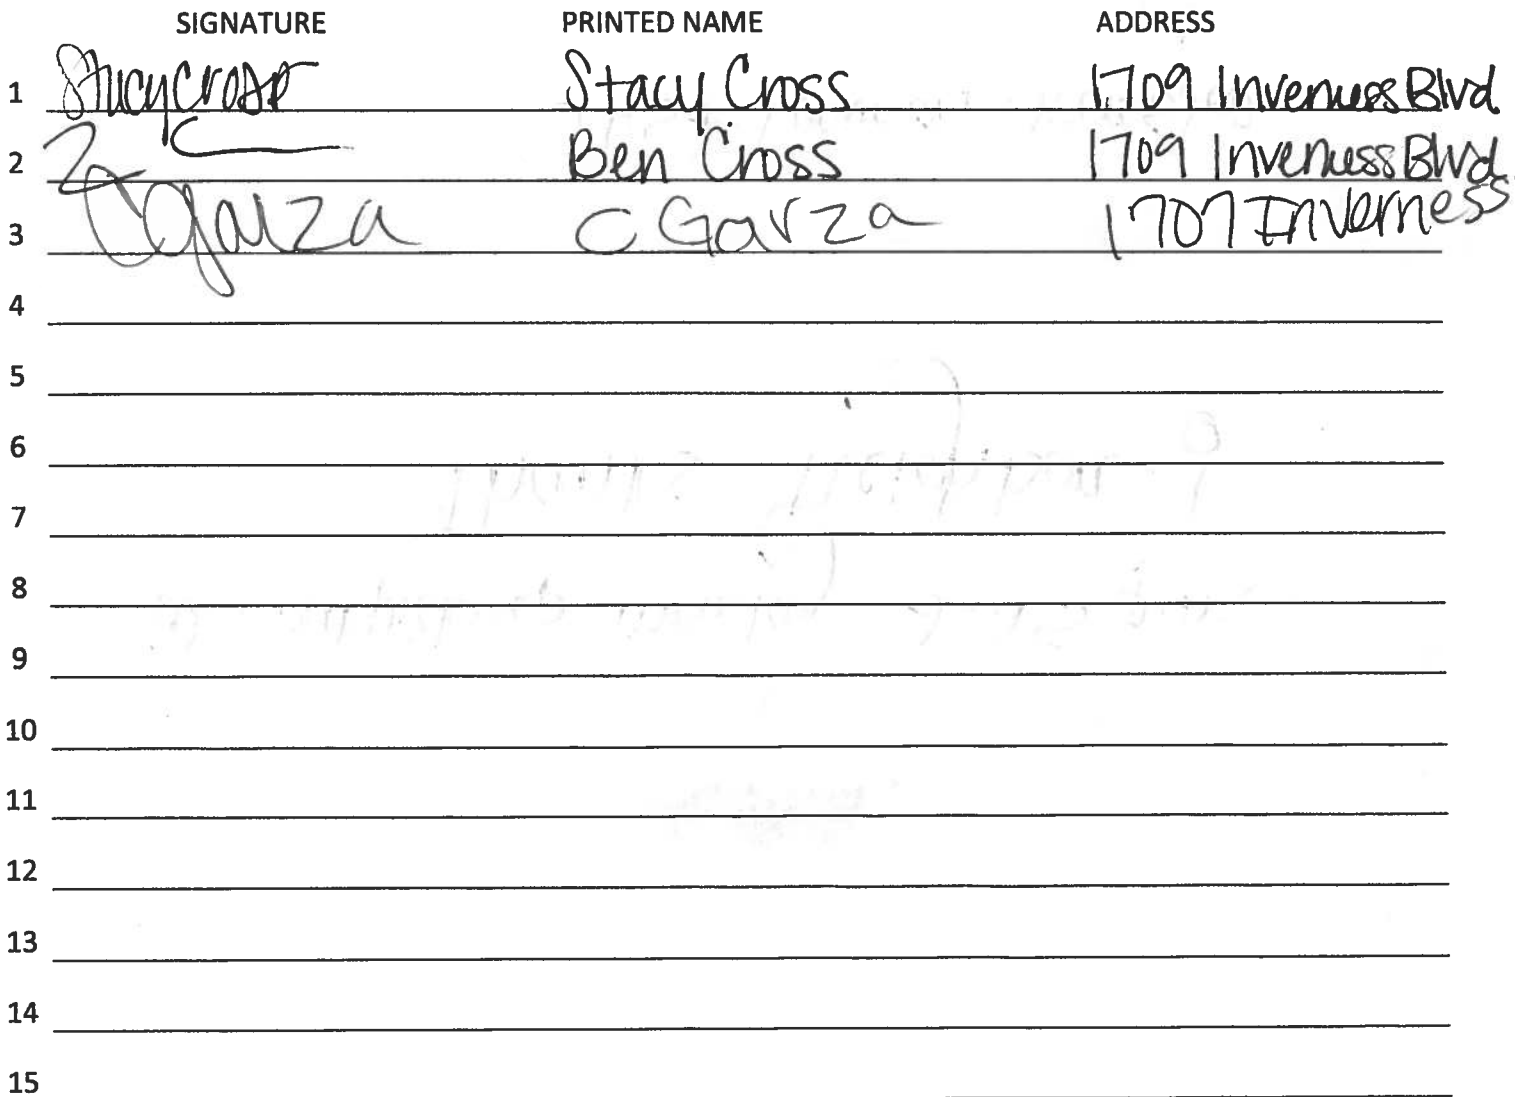 SIGNATURE PRINTED NAME ADDRESS
1 Stacy Cross Stacy Cross 1709 Inverness Blvd
2 Ben Cross 1709 Inverness Blvd.
3 CGarza C Garza 1707 Inverness
4
5
6
7
8
9
10
11
12
13
14
15